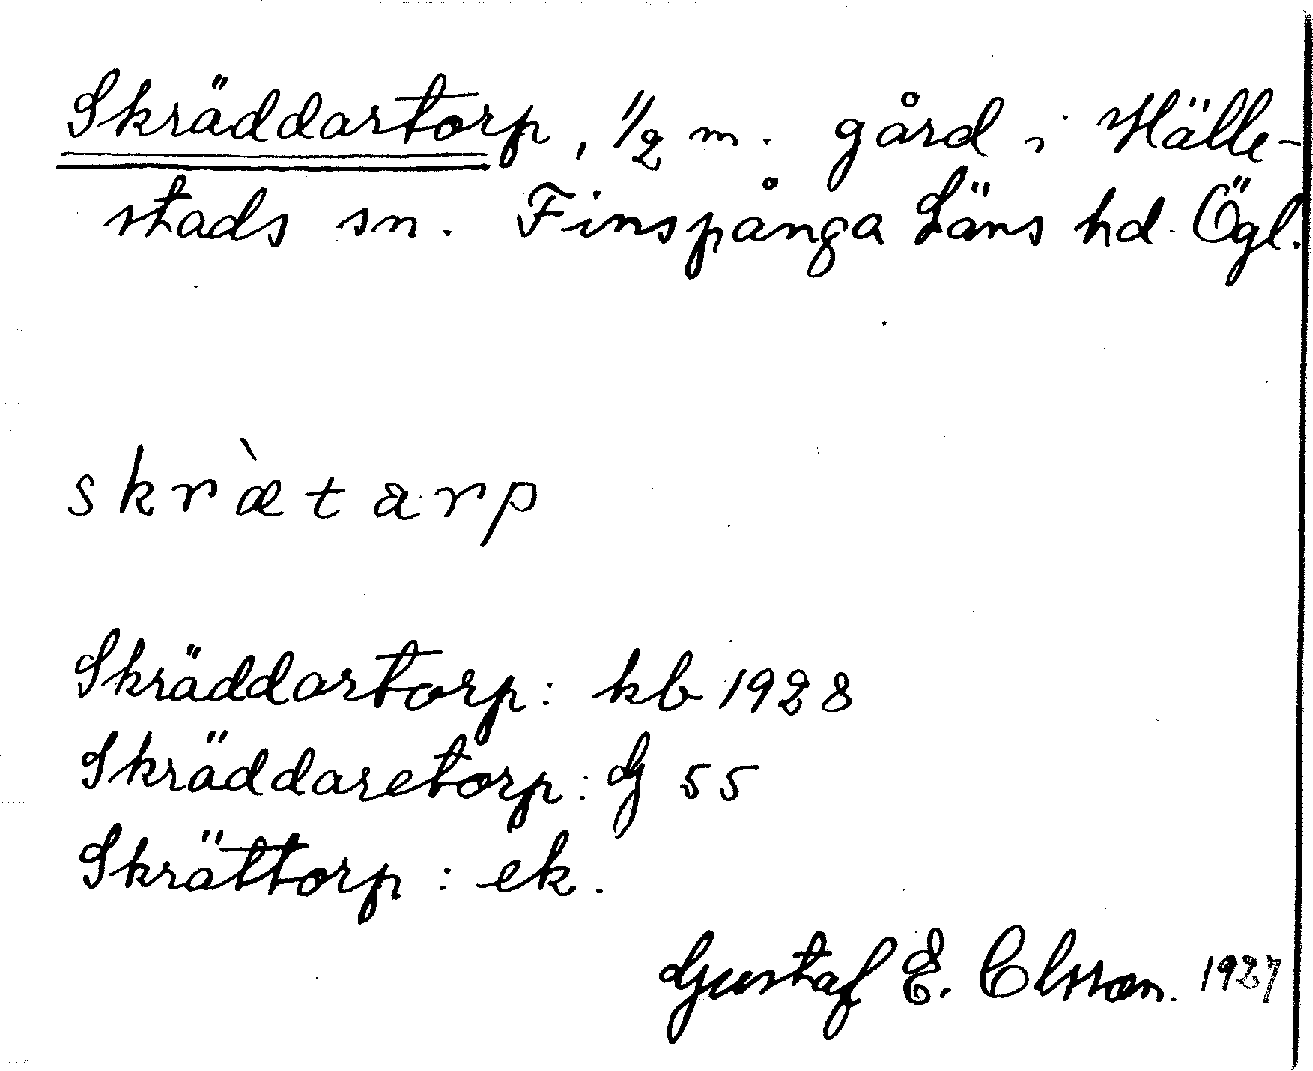 Skräddartorp, 1/2 m. gård i Hälle-
stads sn. Finspånga Läns hd. Ögl.
skræ̀tarp
Skräddartorp: kb 1928
Skräddaretorp: G 55
Skrättorp: ek.
Gustaf E. Olsson. 1927